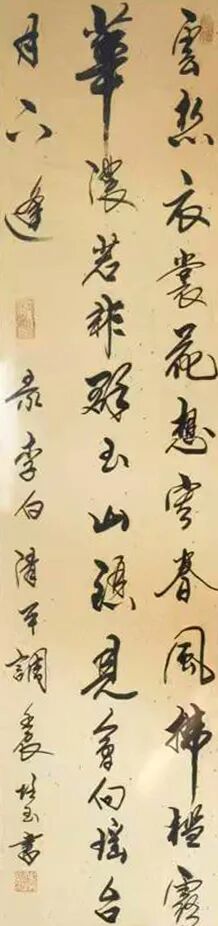 雲想衣裳花想容春風拂檻露
華濃若非群玉山頭見會向瑤台
月下逢 录李白清平調 書